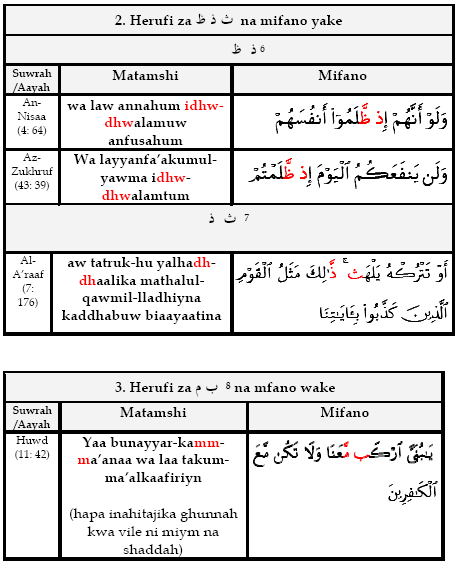 2. Herufi za ث ذ ظ na mifano yake
ذ ظ 6
Suwrah
/Aayah
Matamshi
Mifano
An-
Nisaa
(4: 64)
wa law annahum idhw-
dhwalamuw
anfusahum
وَلَوْ أَنَّهُمْ إِذ ظَّلَمُوٓا۟ أَنفُسَهُمْ
Az-
Zukhruf
(43: 39)
Wa layyanfa’akumul-
yawma idhw-
dhwalamtum
وَلَن يَنفَعَكُمُ ٱلْيَوْمَ إِذ ظَّلَمْتُمْ
ث ذ 7
Al-
A’raaf
(7:
176)
aw tatruk-hu yalhadh-
dhaalika mathalul-
qawmil-lladhiyna
kaddhabuw biaayaatina
أَوْ تَتْرُكْهُ يَلْهَث ۚ ذَّٰلِكَ مَثَلُ ٱلْقَوْمِ
ٱلَّذِينَ كَذَّبُوا۟ بِـَٔايَـٰتِنَا
3. Herufi za ب م 8 na mfano wake
Suwrah
/Aayah
Matamshi
Mifano
Huwd
(11: 42)
Yaa bunayyar-kamm-
ma’anaa wa laa takum-
ma’alkaafiriyn
(hapa inahitajika ghunnah
kwa vile ni miym na
shaddah)
يَـٰبُنَىَّ ٱرْكَب مَّعَنَا وَلَا تَكُن مَّعَ
ٱلْكَـٰفِرِينَ